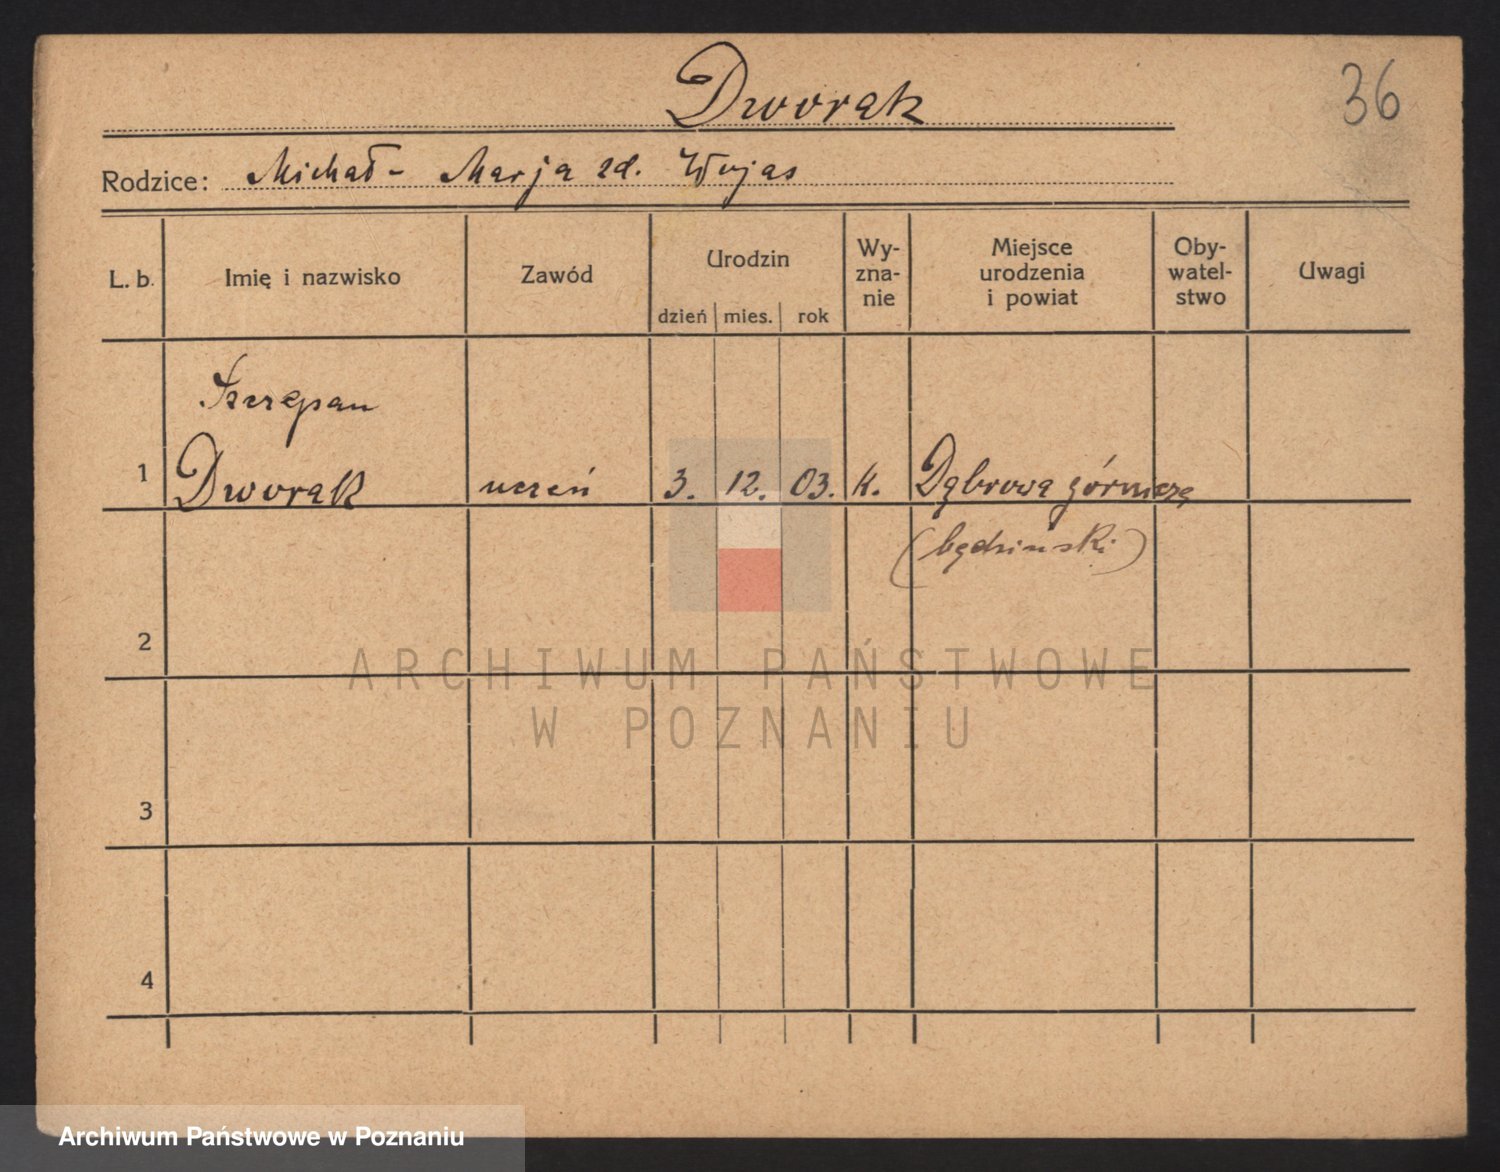 Dworak
36
Rodzice: Michał - Marja zd. Wujas
L. b. Imię i nazwisko Zawód Urodzin Wy-zna-nie Miejsce urodzenia i powiat Oby-watel-stwo Uwagi
dzień mies. rok
Szczepan
1 Dworak uczeń 3. 12. 03. k. Dąbrowa górnicza
(będziński)
2
ARCHIWUM PAŃSTWOWE
W POZNANIU
3
4
Archiwum Państwowe w Poznaniu